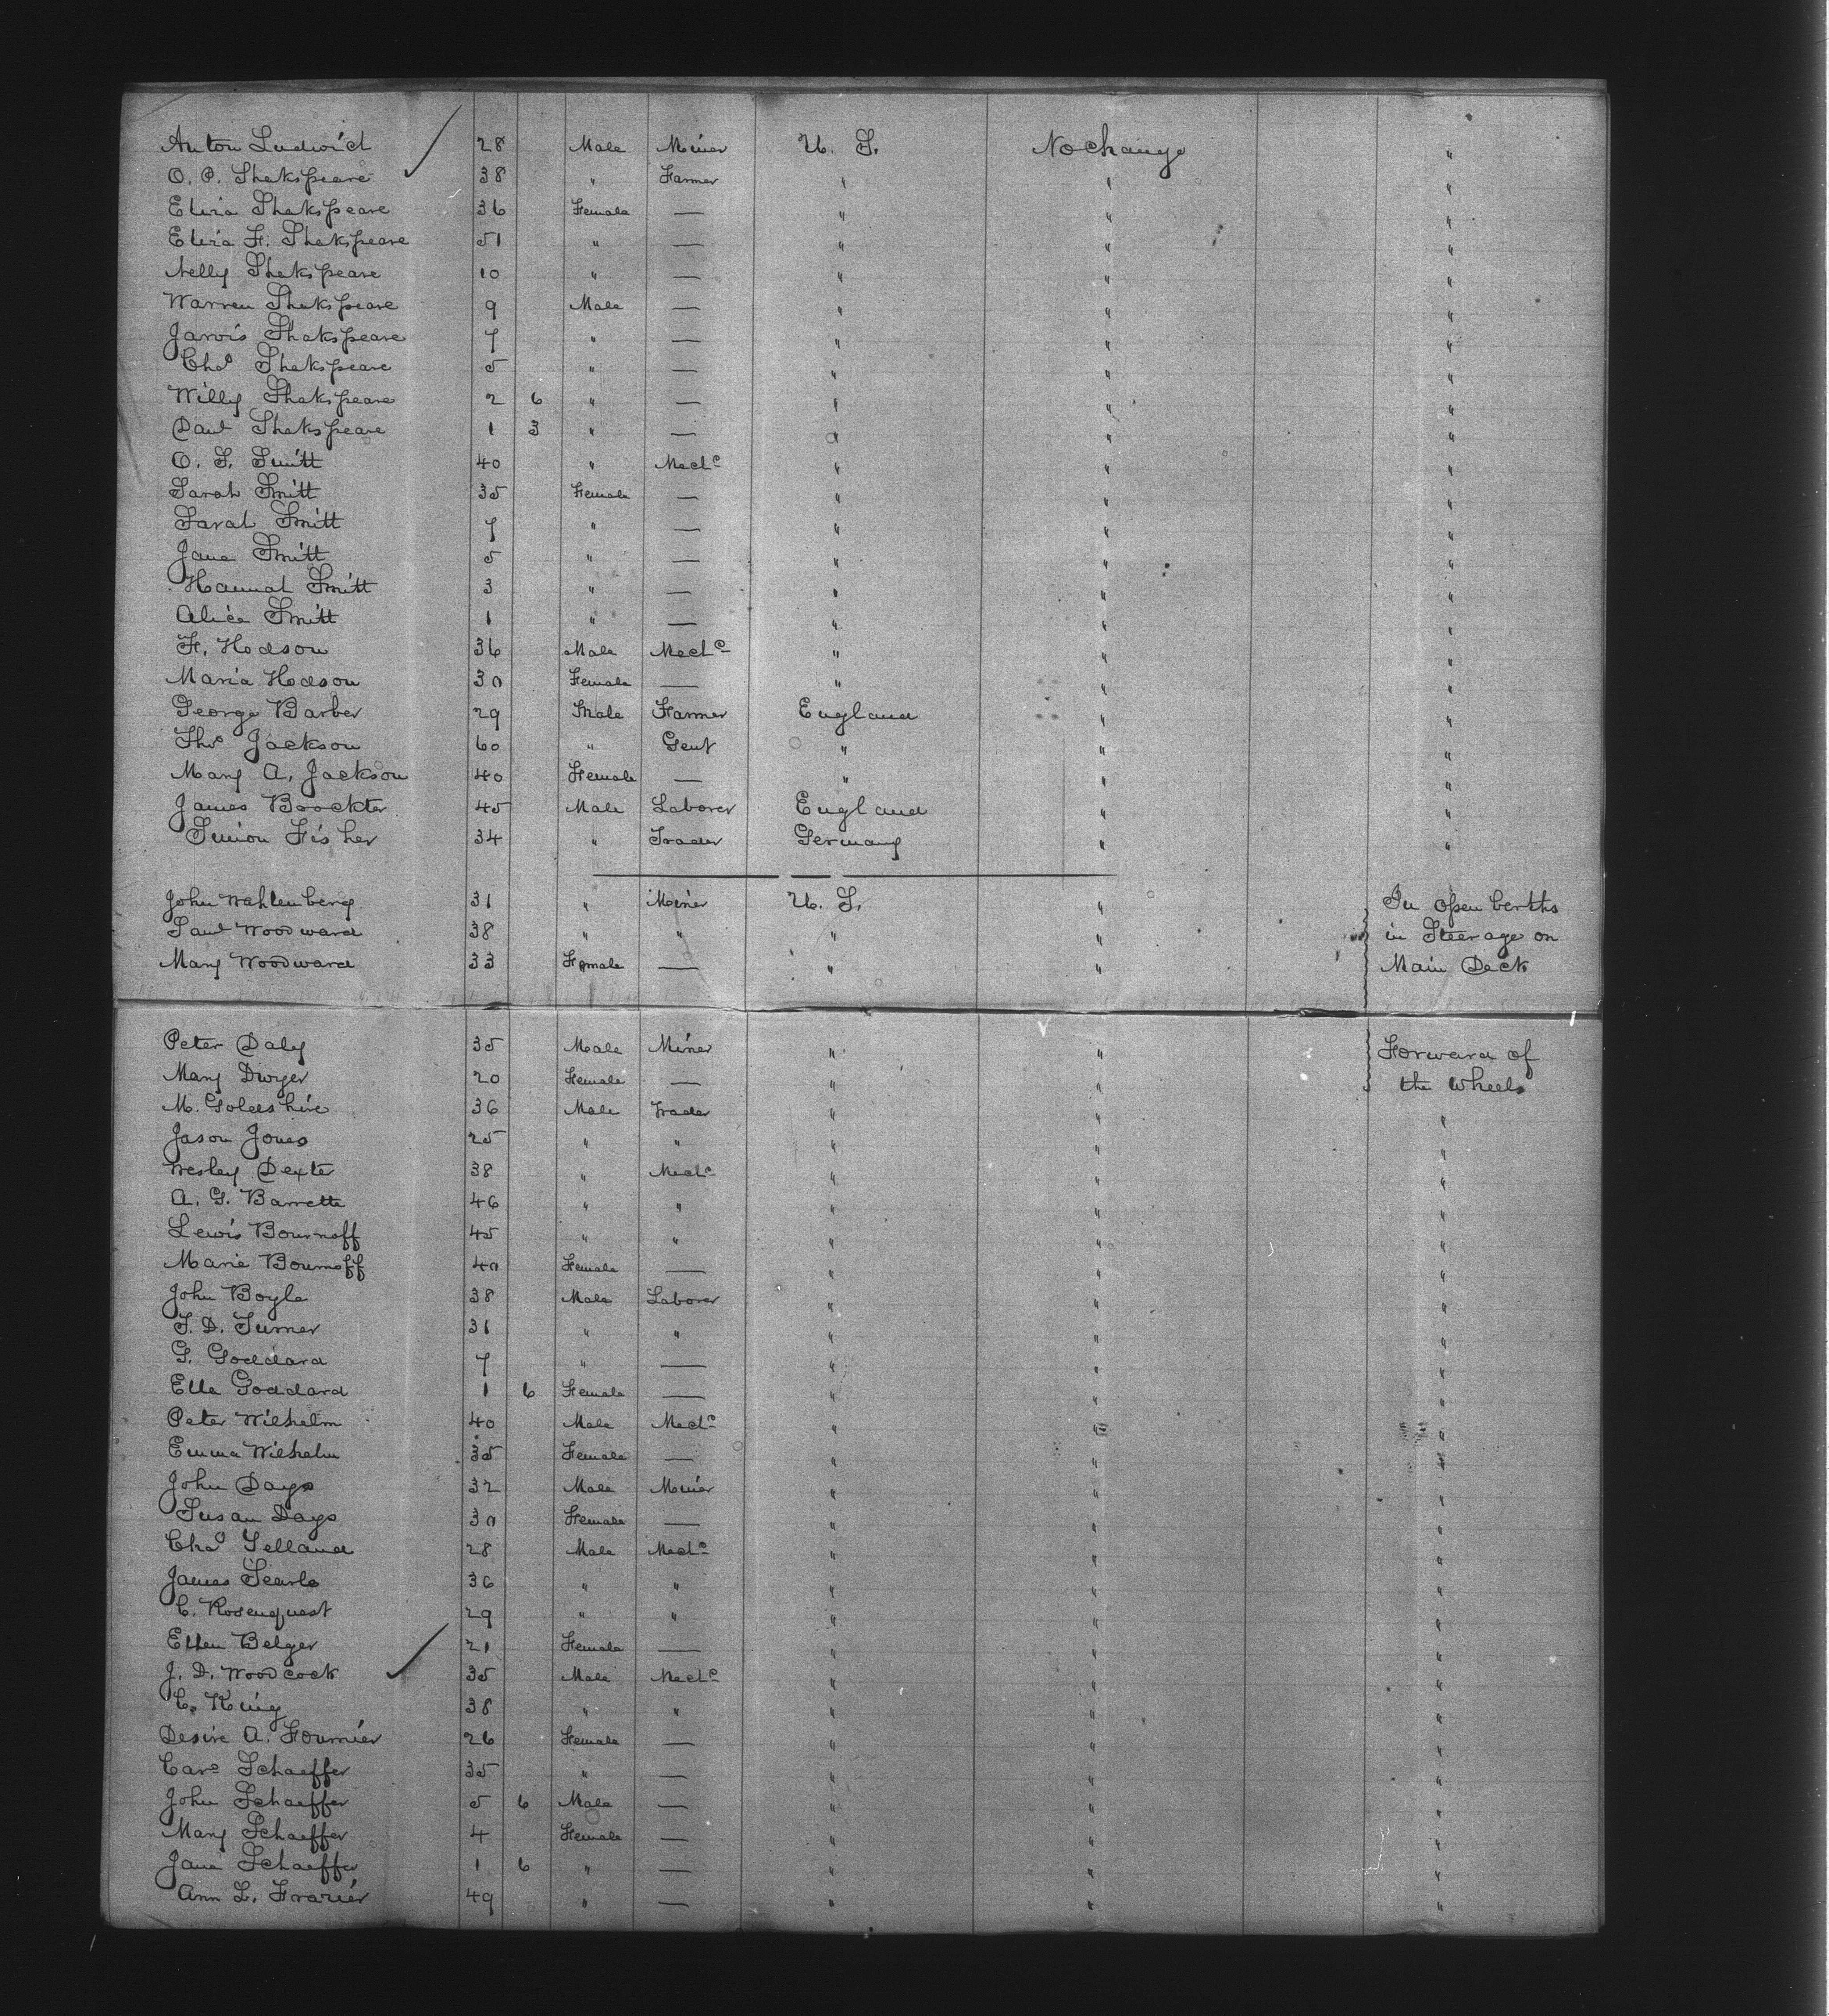 Anton Ludwich 28 Male Miner U. S. No change "
O. P. Shakspeare 38 " Farmer " " "
Eliza Shakspeare 36 Female — " " "
Eliza F. Shakspeare 51 " — " " "
Nelly Shakspeare 10 " — " " "
Warren Shakspeare 9 Male — " " "
Jarvis Shakspeare 7 " — " " "
Chas Shakspeare 5 " — " " "
Willy Shakspeare 2 6 " — " " "
Paul Shakspeare 1 3 " — " " "
O. S. Smith 40 " Mechc " " "
Sarah Smith 35 Female — " " "
Sarah Smith 7 " — " " "
Jane Smith 5 " — " " "
Hannah Smith 3 " — " " "
Alice Smith 1 " — " " "
F. Hodson 36 Male Mechc " " "
Maria Hodson 30 Female — " " "
George Barber 29 Male Farmer England " "
Thos Jackson 60 " Gent " " "
Mary A. Jackson 40 Female — " " "
James Boockter 45 Male Laborer England " "
Simon Fisher 34 " Trader Germany " "
John Wahlenberg 31 " Miner U. S. " In open berths
Saul Woodward 38 " " " " in Steerage on
Mary Woodward 33 Female — " " Main Deck
Peter Daly 35 Male Miner " " Forward of
Mary Dwyer 20 Female — " " the Wheels
M. Goldshire 36 Male Trader " " "
Jason Jones 25 " " " " "
Wesley Dexter 38 " Mechc " " "
A. G. Barrette 46 " " " " "
Lewis Bournoff 45 " " " " "
Marie Bournoff 40 Female — " " "
John Boyle 38 Male Laborer " " "
T. D. Turner 31 " " " " "
G. Goddard 7 " — " " "
Ella Goddard 1 6 Female — " " "
Peter Wilhelm 40 Male Mechc " " "
Emma Wilhelm 35 Female — " " "
John Days 32 Male Miner " " "
Susan Days 30 Female — " " "
Chas Yelland 28 Male Mechc " " "
James Searls 36 " " " " "
C. Rosenquest 29 " " " " "
Ellen Belger 21 Female — " " "
J. D. Woodcock 35 Male Mechc " " "
C. King 38 " " " " "
Desire A. Fournier 26 Female — " " "
Care Schaeffer 35 " — " " "
John Schaeffer 5 6 Male — " " "
Mary Schaeffer 4 Female — " " "
Jane Schaeffer 1 6 " — " " "
Ann L. Frazier 49 " — " " "